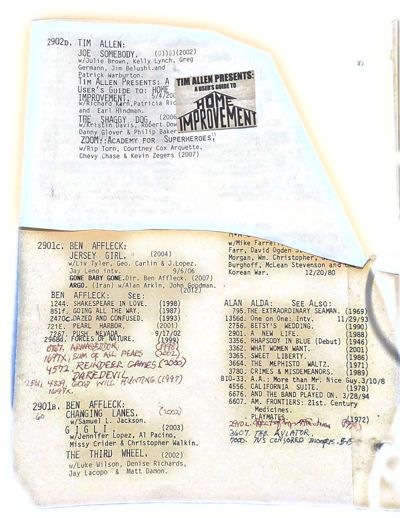 2902D. TIM ALLEN:
JOE SOMEBODY. (2002)
w/Julie Brown, Kelly Lynch, Greg
Germann, Jim Belushi.and
Patrick Warburton.
TIM ALLEN PRESENTS: A
USER'S GUIDE TO: HOME
IMPROVEMENT. 5/4/200
w/Richard Karn,Patricia Ric
and Earl Hindman.
THE SHAGGY DOG. (2006
w/Kristin Davis, Robert Dow
Danny Glover & Philip Baker
ZOOM: ACADEMY FOR SUPERHEROES,
w/Rip Torn, Courtney Cox Arquette,
Chevy Chase & Kevin Zegers (2007)
TIM ALLEN PRESENTS:
A USER'S GUIDE TO
HOME
IMPROVEMENT
2901C. BEN AFFLECK:
JERSEY GIRL. (2004)
w/Liv Tyler, Geo. Carlin & J.Lopez.
Jay Leno intv. 9/6/06
GONE BABY GONE.Dir. Ben Affleck. (2007)
ARGO. (Iran) w/Alan Arkin, John Goodman.
(2012)
BEN AFFLECK: SEE:
1244. SHAKESPEARE IN LOVE. (1998)
851F. GOING ALL THE WAY. (1987)
2470C.DAZED AND CONFUSED. (1993)
721E. PEARL HARBOR. (2001)
7267. RUSH, NEVADA. 9/17/02
2968D. FORCES OF NATURE. (1999)
ARMAGEDDON
1697X. SUM OF ALL FEARS (2002)
4572 REINDEER GAMES (2000)
DAREDEVIL
GOOD WILL HUNTING (1997)
2901B. BEN AFFLECK:
CHANGING LANES. (2002)
w/Samuel L. Jackson.
GIGLI. (2003)
w/Jennifer Lopez, Al Pacino,
Missy Crider & Christopher Walkin.
THE THIRD WHEEL. (2002)
w/Luke Wilson, Denise Richards,
Jay Lacopo & Matt Damon.
w/Mike Farrel
Farr, David Ogden
Morgan, Wm. Christopher,
Burghoff, McLean Stevenson and
Korean War. 12/20/80
ALAN ALDA: SEE ALSO:
795.THE EXTRAORDINARY SEAMAN. (1969)
1356D. One on One: Intv. 11/29/93
2756. BETSY'S WEDDING. (1990)
2901. A NEW LIFE. (1988)
3356. RHAPSODY IN BLUE (Debut) (1946)
3362. WHAT WOMEN WANT. (2001)
3365. SWEET LIBERTY. (1986)
3664. THE MEPHISTO WALTZ. (1971)
3780. CRIMES & MISDEMEANORS. (1989)
BIO-33. A.A.: More than Mr. Nice Guy.3/10/8
4556. CALIFORNIA SUITE. (1978)
6676. AND THE BAND PLAYED ON. 3/28/94
6607. AM. FRONTIERS: 21st. Century
Medicines.
PLAYMATES. (1972)
3607. THE AVIATOR